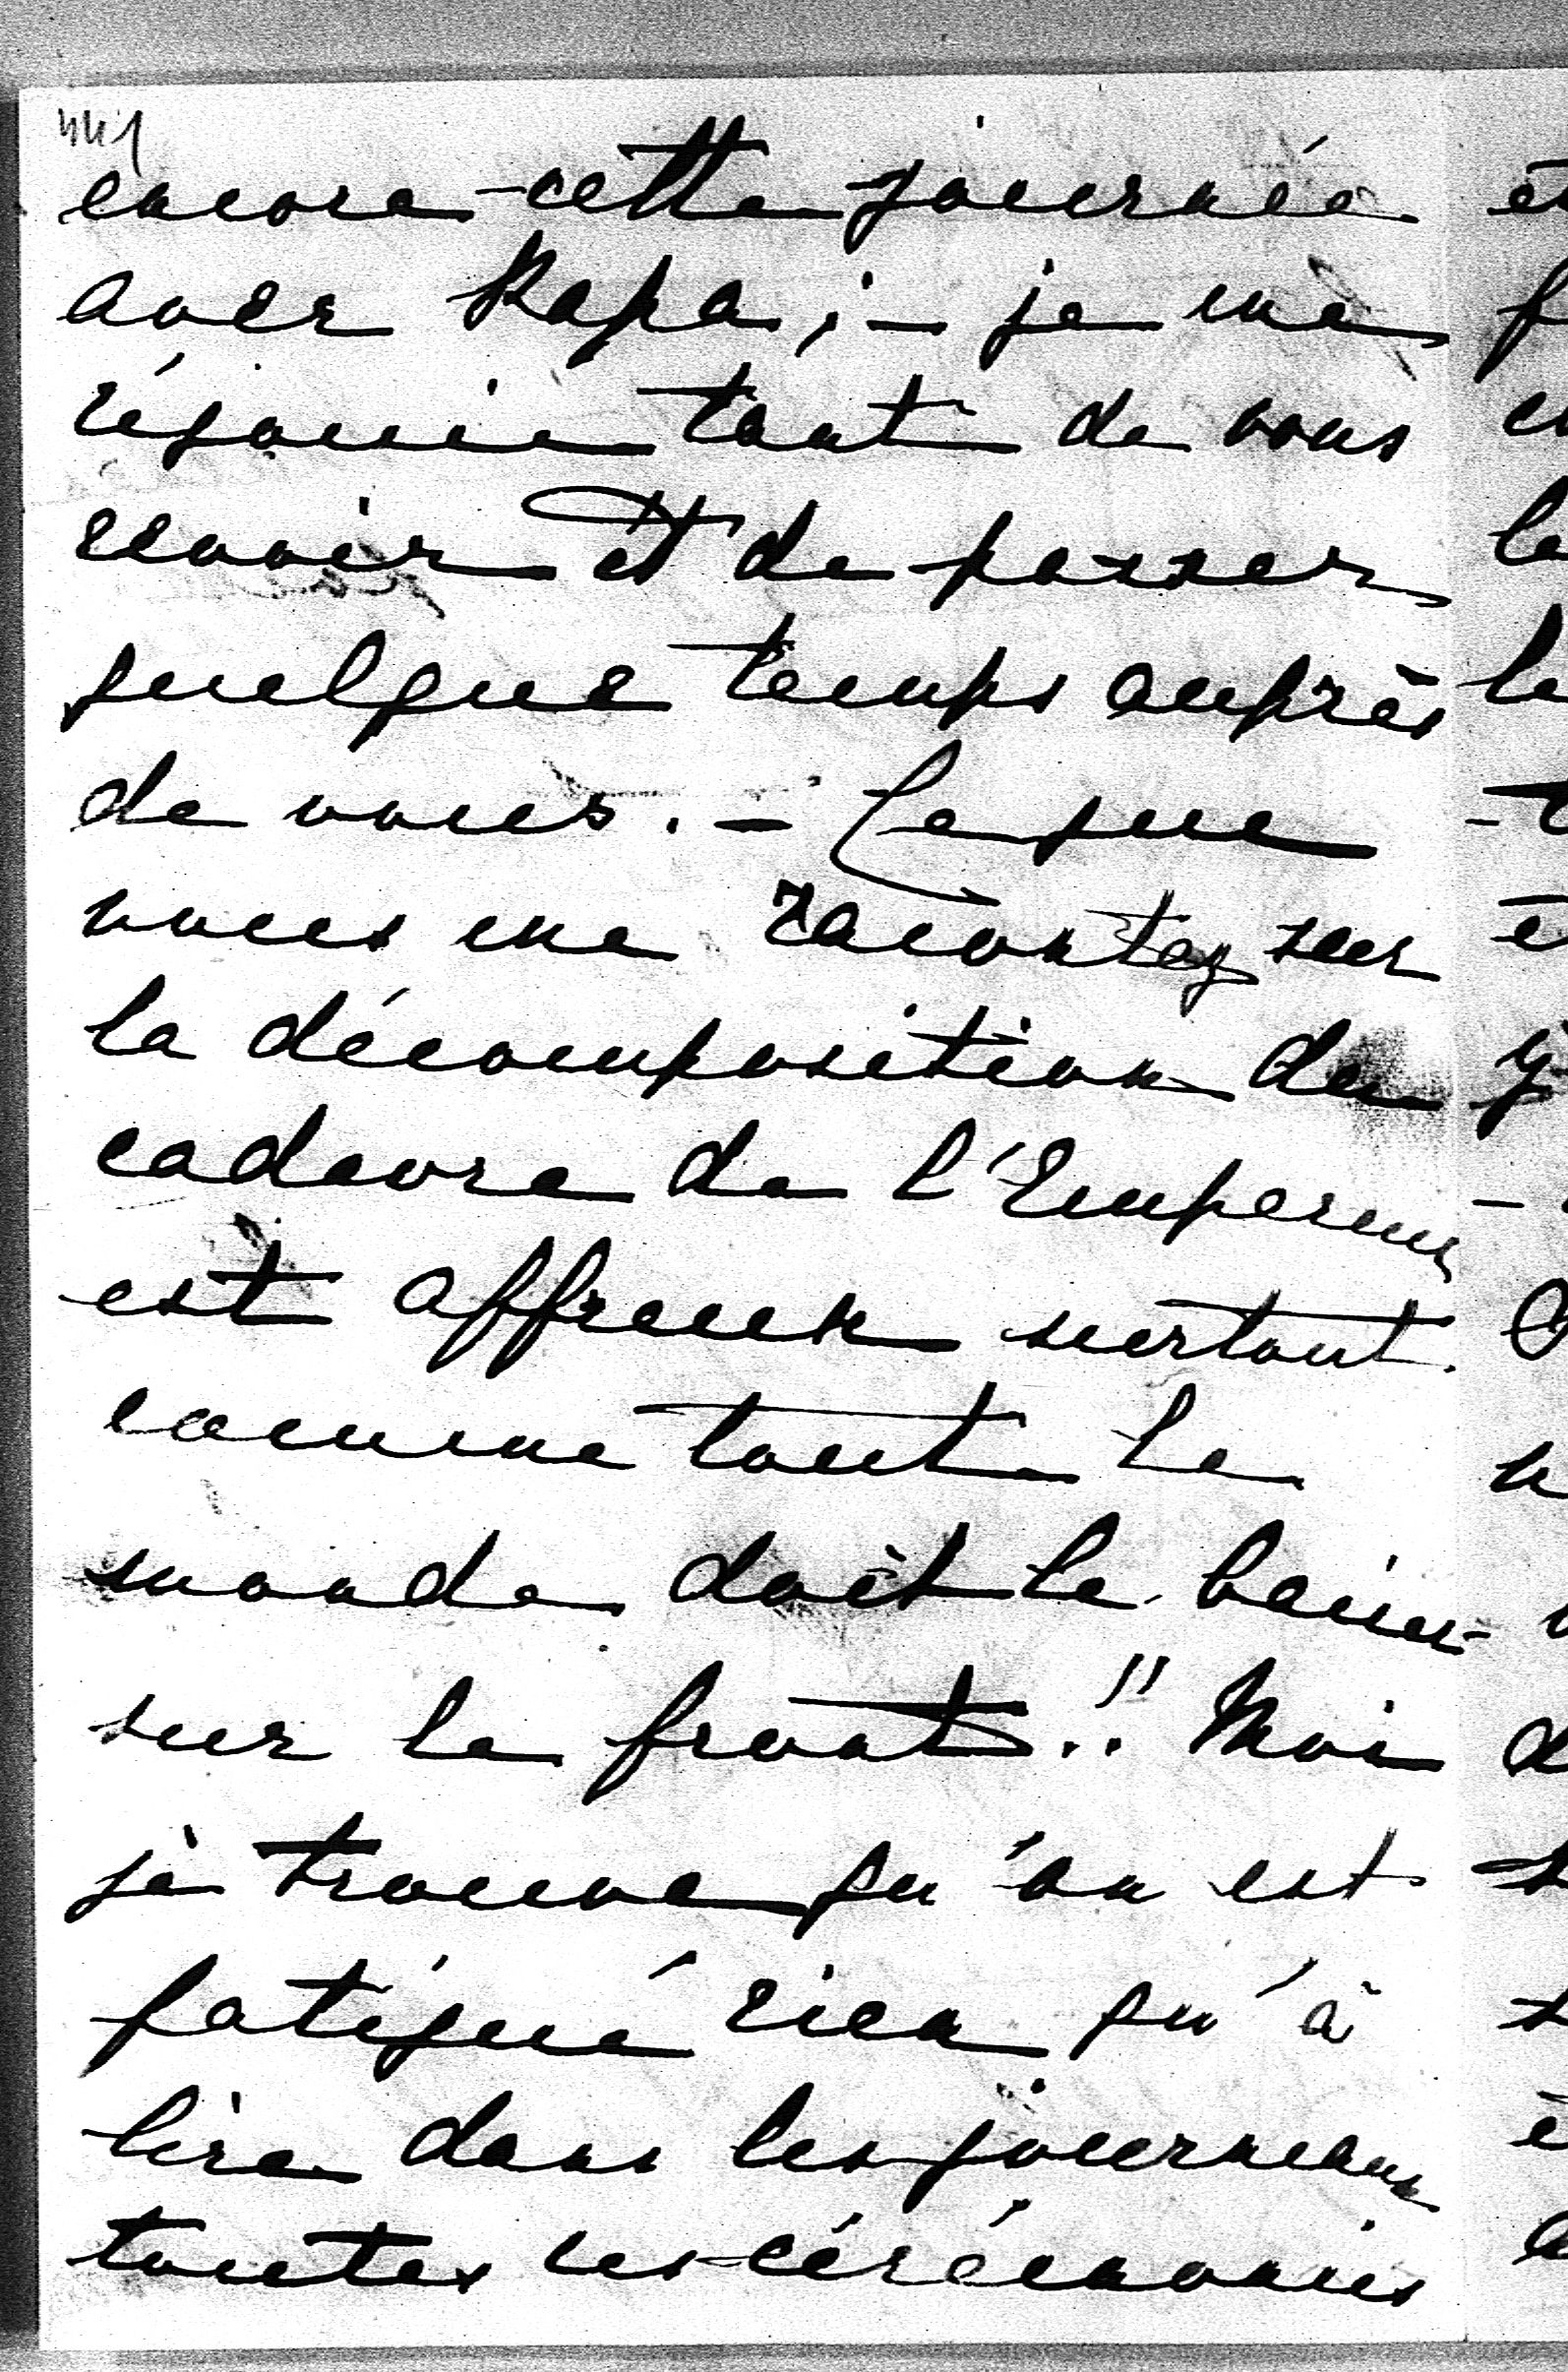 441
encore cette journée
avec Papa ; – je me
réjouie tant de vous
revoir et de passer
quelque temps auprès
de vous. – Ce que
vous me racontez sur
la décomposition du
cadavre de l'Empereur
est affreux surtout
comme tout le
monde doit le baiser
sur le front !! Moi
je trouve qu'on est
fatigué rien qu'à
lire dans les journeaux
toutes les cérémonies